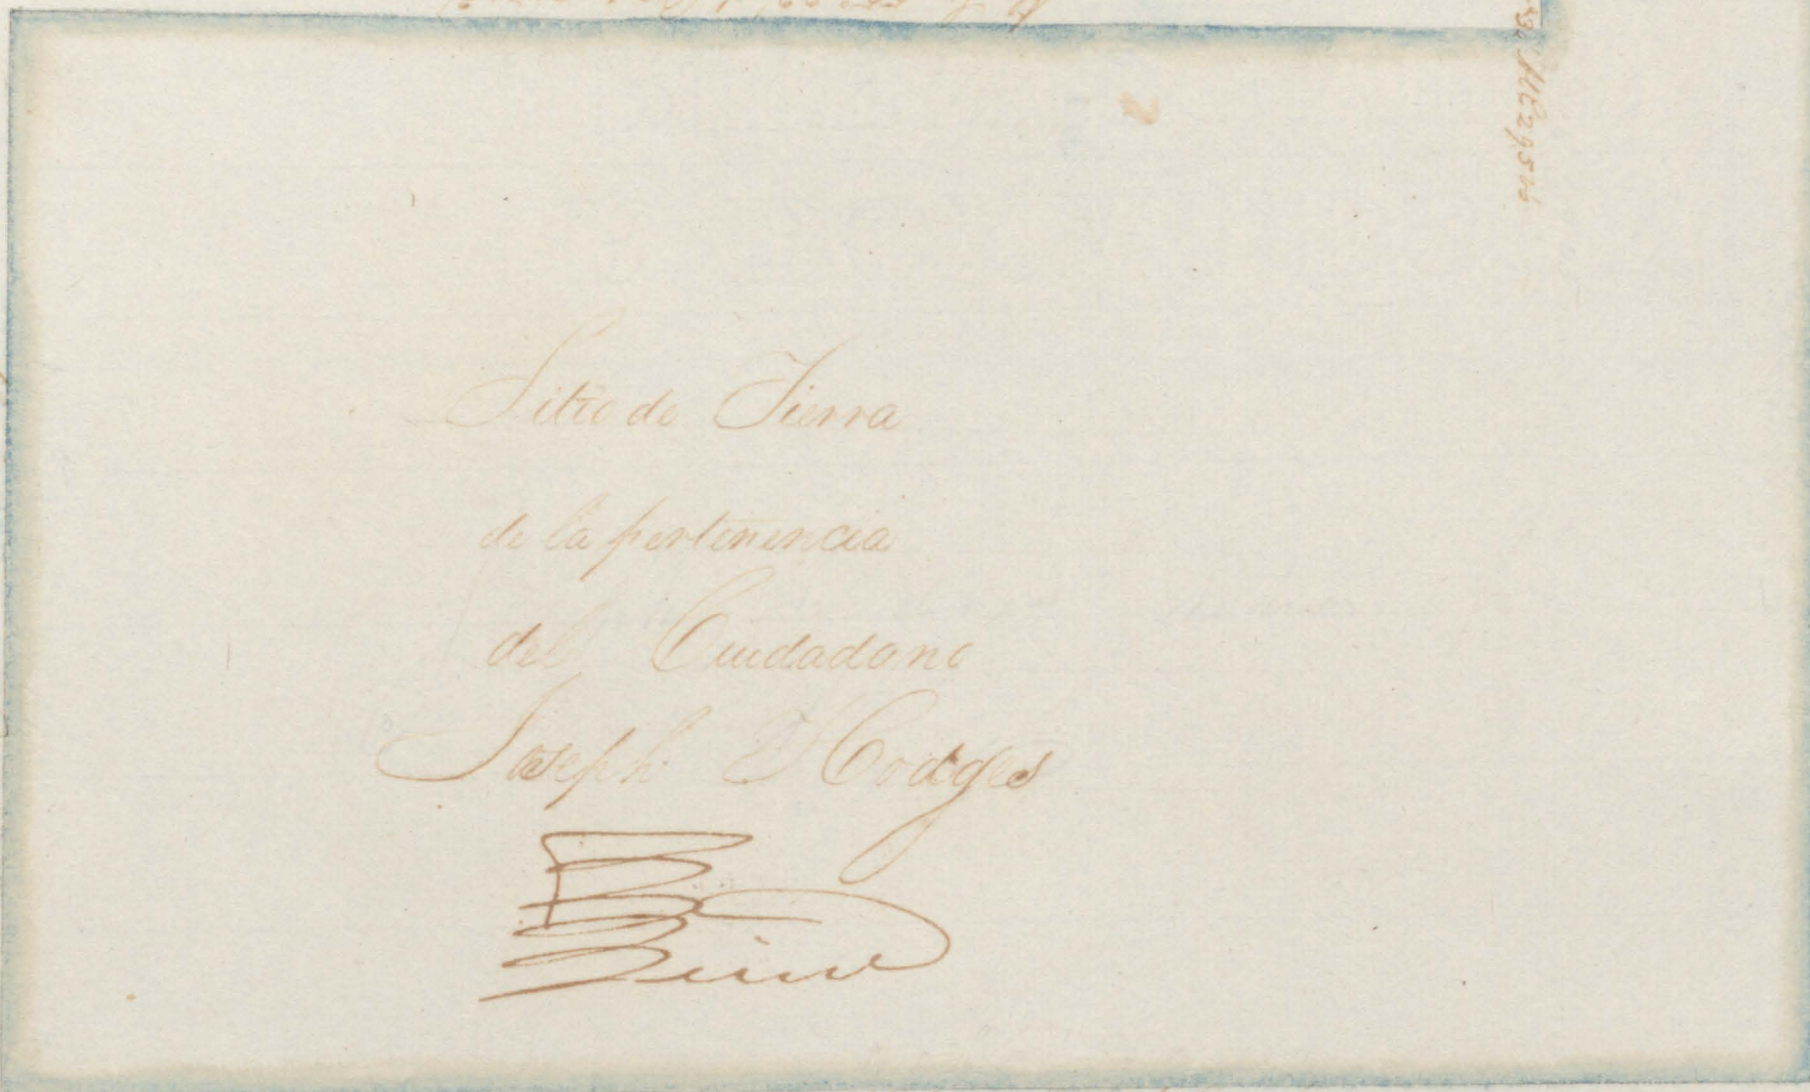 Sitio de Tierra
de la pertenencia
del Ciudadano
Joseph D Hodges